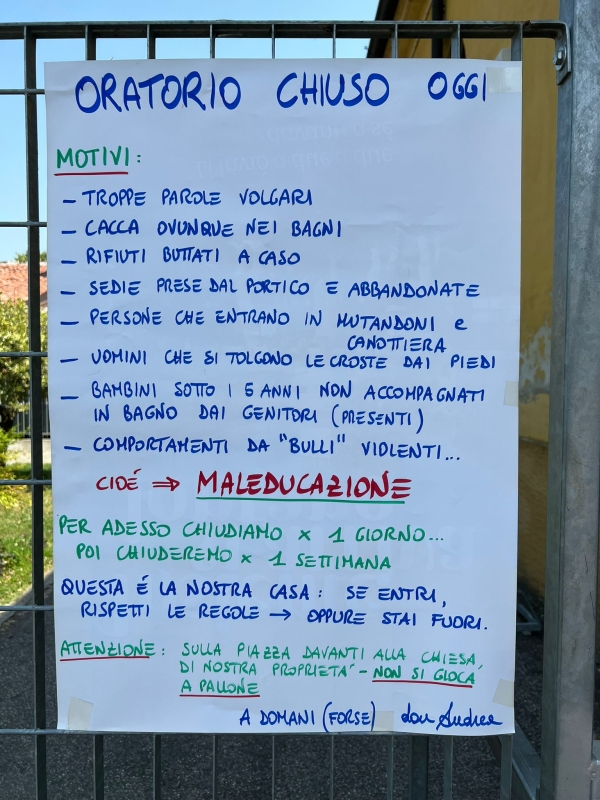 ORATORIO CHIUSO OGGI
MOTIVI:
- TROPPE PAROLE VOLGARI
- CACCA OVUNQUE NEI BAGNI
- RIFIUTI BUTTATI A CASO
- SEDIE PRESE DAL PORTICO E ABBANDONATE
- PERSONE CHE ENTRANO IN MUTANDONI e
CANOTTIERA
- UOMINI CHE SI TOLGONO LE CROSTE DAI PIEDI
- BAMBINI SOTTO I 5 ANNI NON ACCOMPAGNATI
IN BAGNO DAI GENITORI (PRESENTI)
- COMPORTAMENTI DA "BULLI" VIOLENTI...
CIOÉ ⇒ MALEDUCAZIONE
PER ADESSO CHIUDIAMO x 1 GIORNO...
POI CHIUDEREMO x 1 SETTIMANA
QUESTA É LA NOSTRA CASA: SE ENTRI,
RISPETTI LE REGOLE → OPPURE STAI FUORI.
ATTENZIONE: SULLA PIAZZA DAVANTI ALLA CHIESA,
DI NOSTRA PROPRIETA' - NON SI GIOCA
A PALLONE
A DOMANI (FORSE) don Andrea